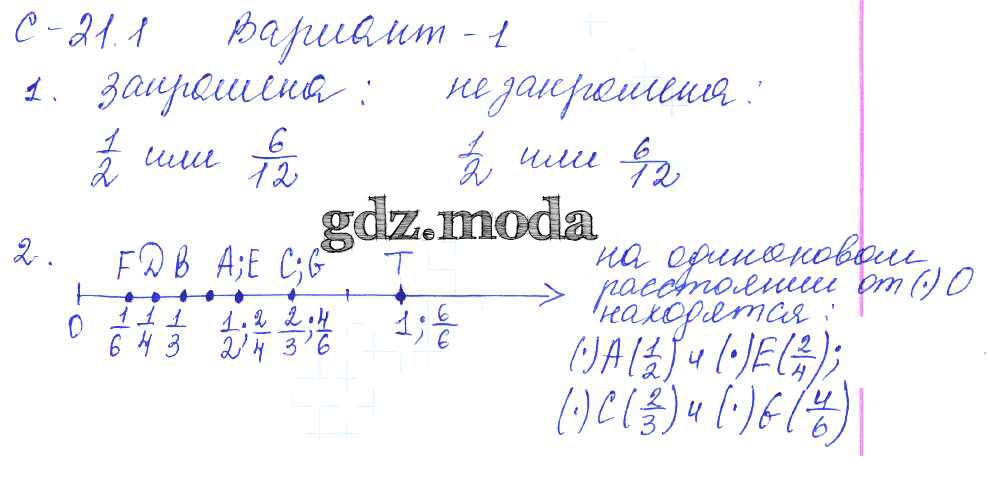 С-21.1 Вариант-1
1. Закрашена: не закрашена:
1/2 или 6/12 1/2 или 6/12
gdz.moda
2. F D B A;E C;G T
0 1/6 1/4 1/3 1/2;2/4 2/3;4/6 1;6/6
на одинаковом
расстоянии от (·) O
находятся:
(·)A(1/2) и (·)E(2/4);
(·)C(2/3) и (·)G(4/6)